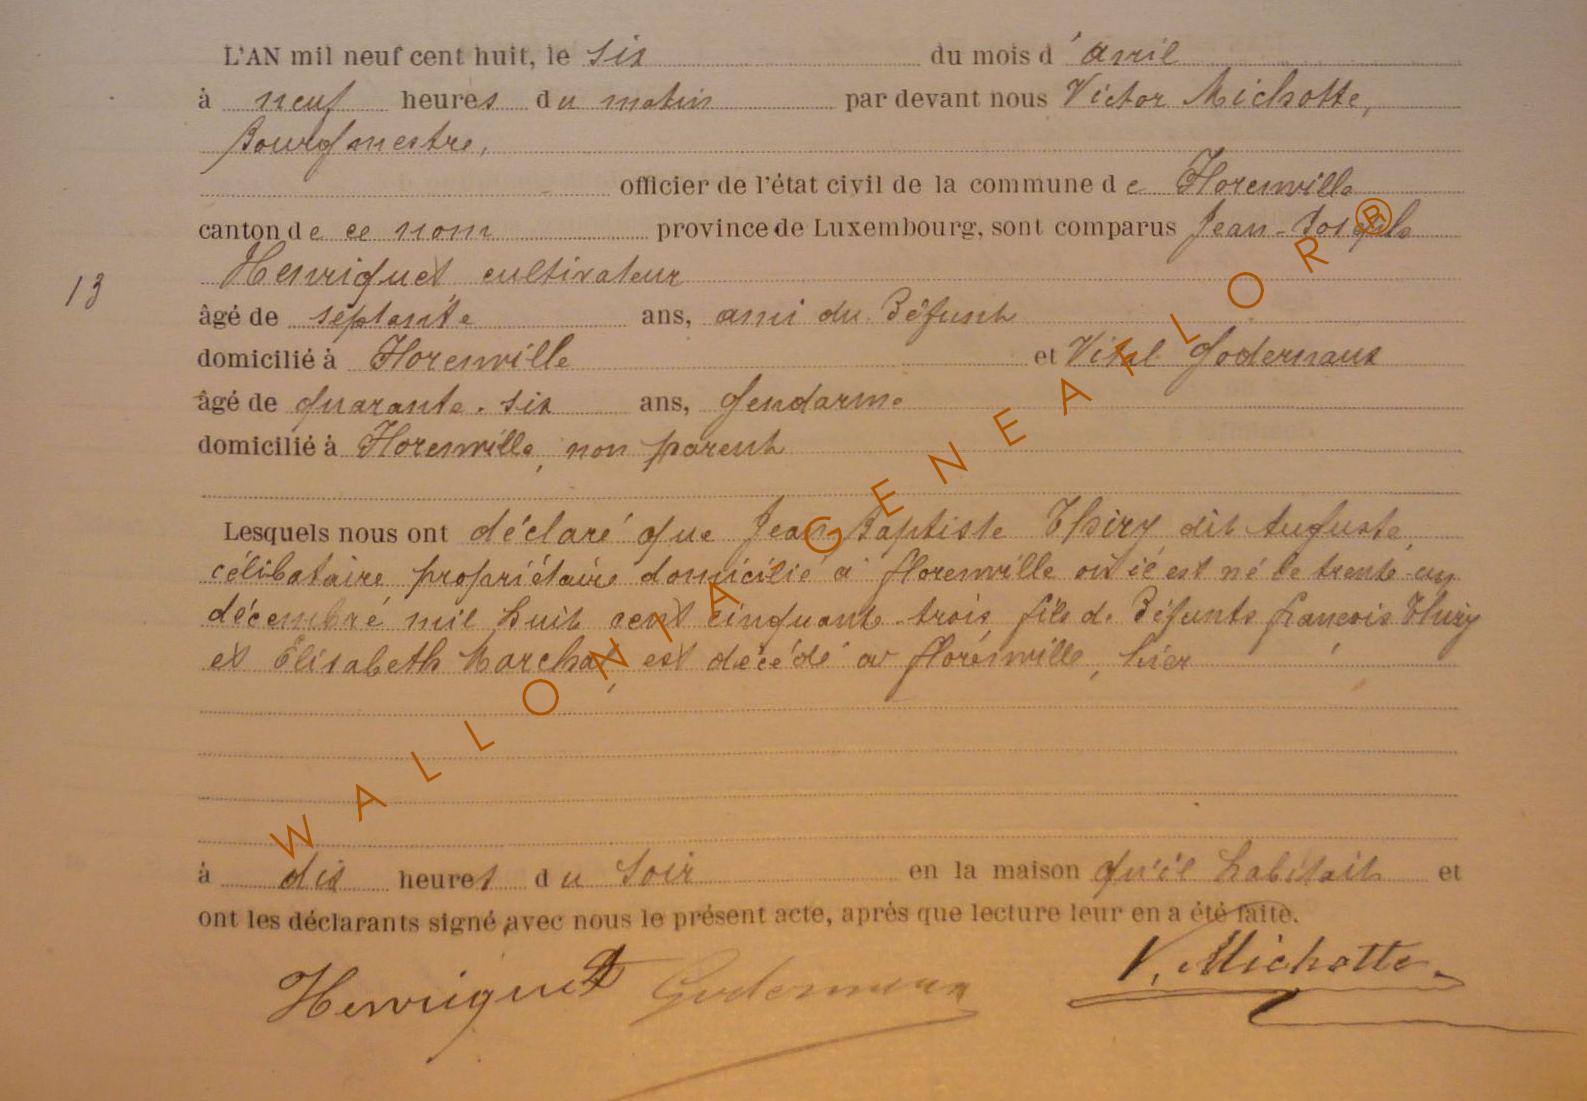 L'AN mil neuf cent huit, le six du mois d'avril
à neuf heures du matin par devant nous Victor Michotte,
Bourgmestre,
officier de l'état civil de la commune de Florenville
canton de ce nom province de Luxembourg, sont comparus Jean-Joseph
Henriquet cultivateur
13
âgé de septante ans, ami du Défunt
domicilié à Florenville et Vital Godernaux
âgé de quarante-six ans, Gendarme
domicilié à Florenville, non parent
Lesquels nous ont déclaré que Jean Baptiste Thiry dit Auguste,
célibataire, propriétaire domicilié à Florenville où il est né le trente-un
décembre mil huit cent cinquante-trois fils de Défunts François Thiry
et Élisabeth Marchal, est décédé à Florenville, hier
à dix heures du soir en la maison qu'il habitait et
ont les déclarants signé avec nous le présent acte, après que lecture leur en a été faite.
Henriquet Godernaux V. Michotte
WALLONIA GENEAFLOR®